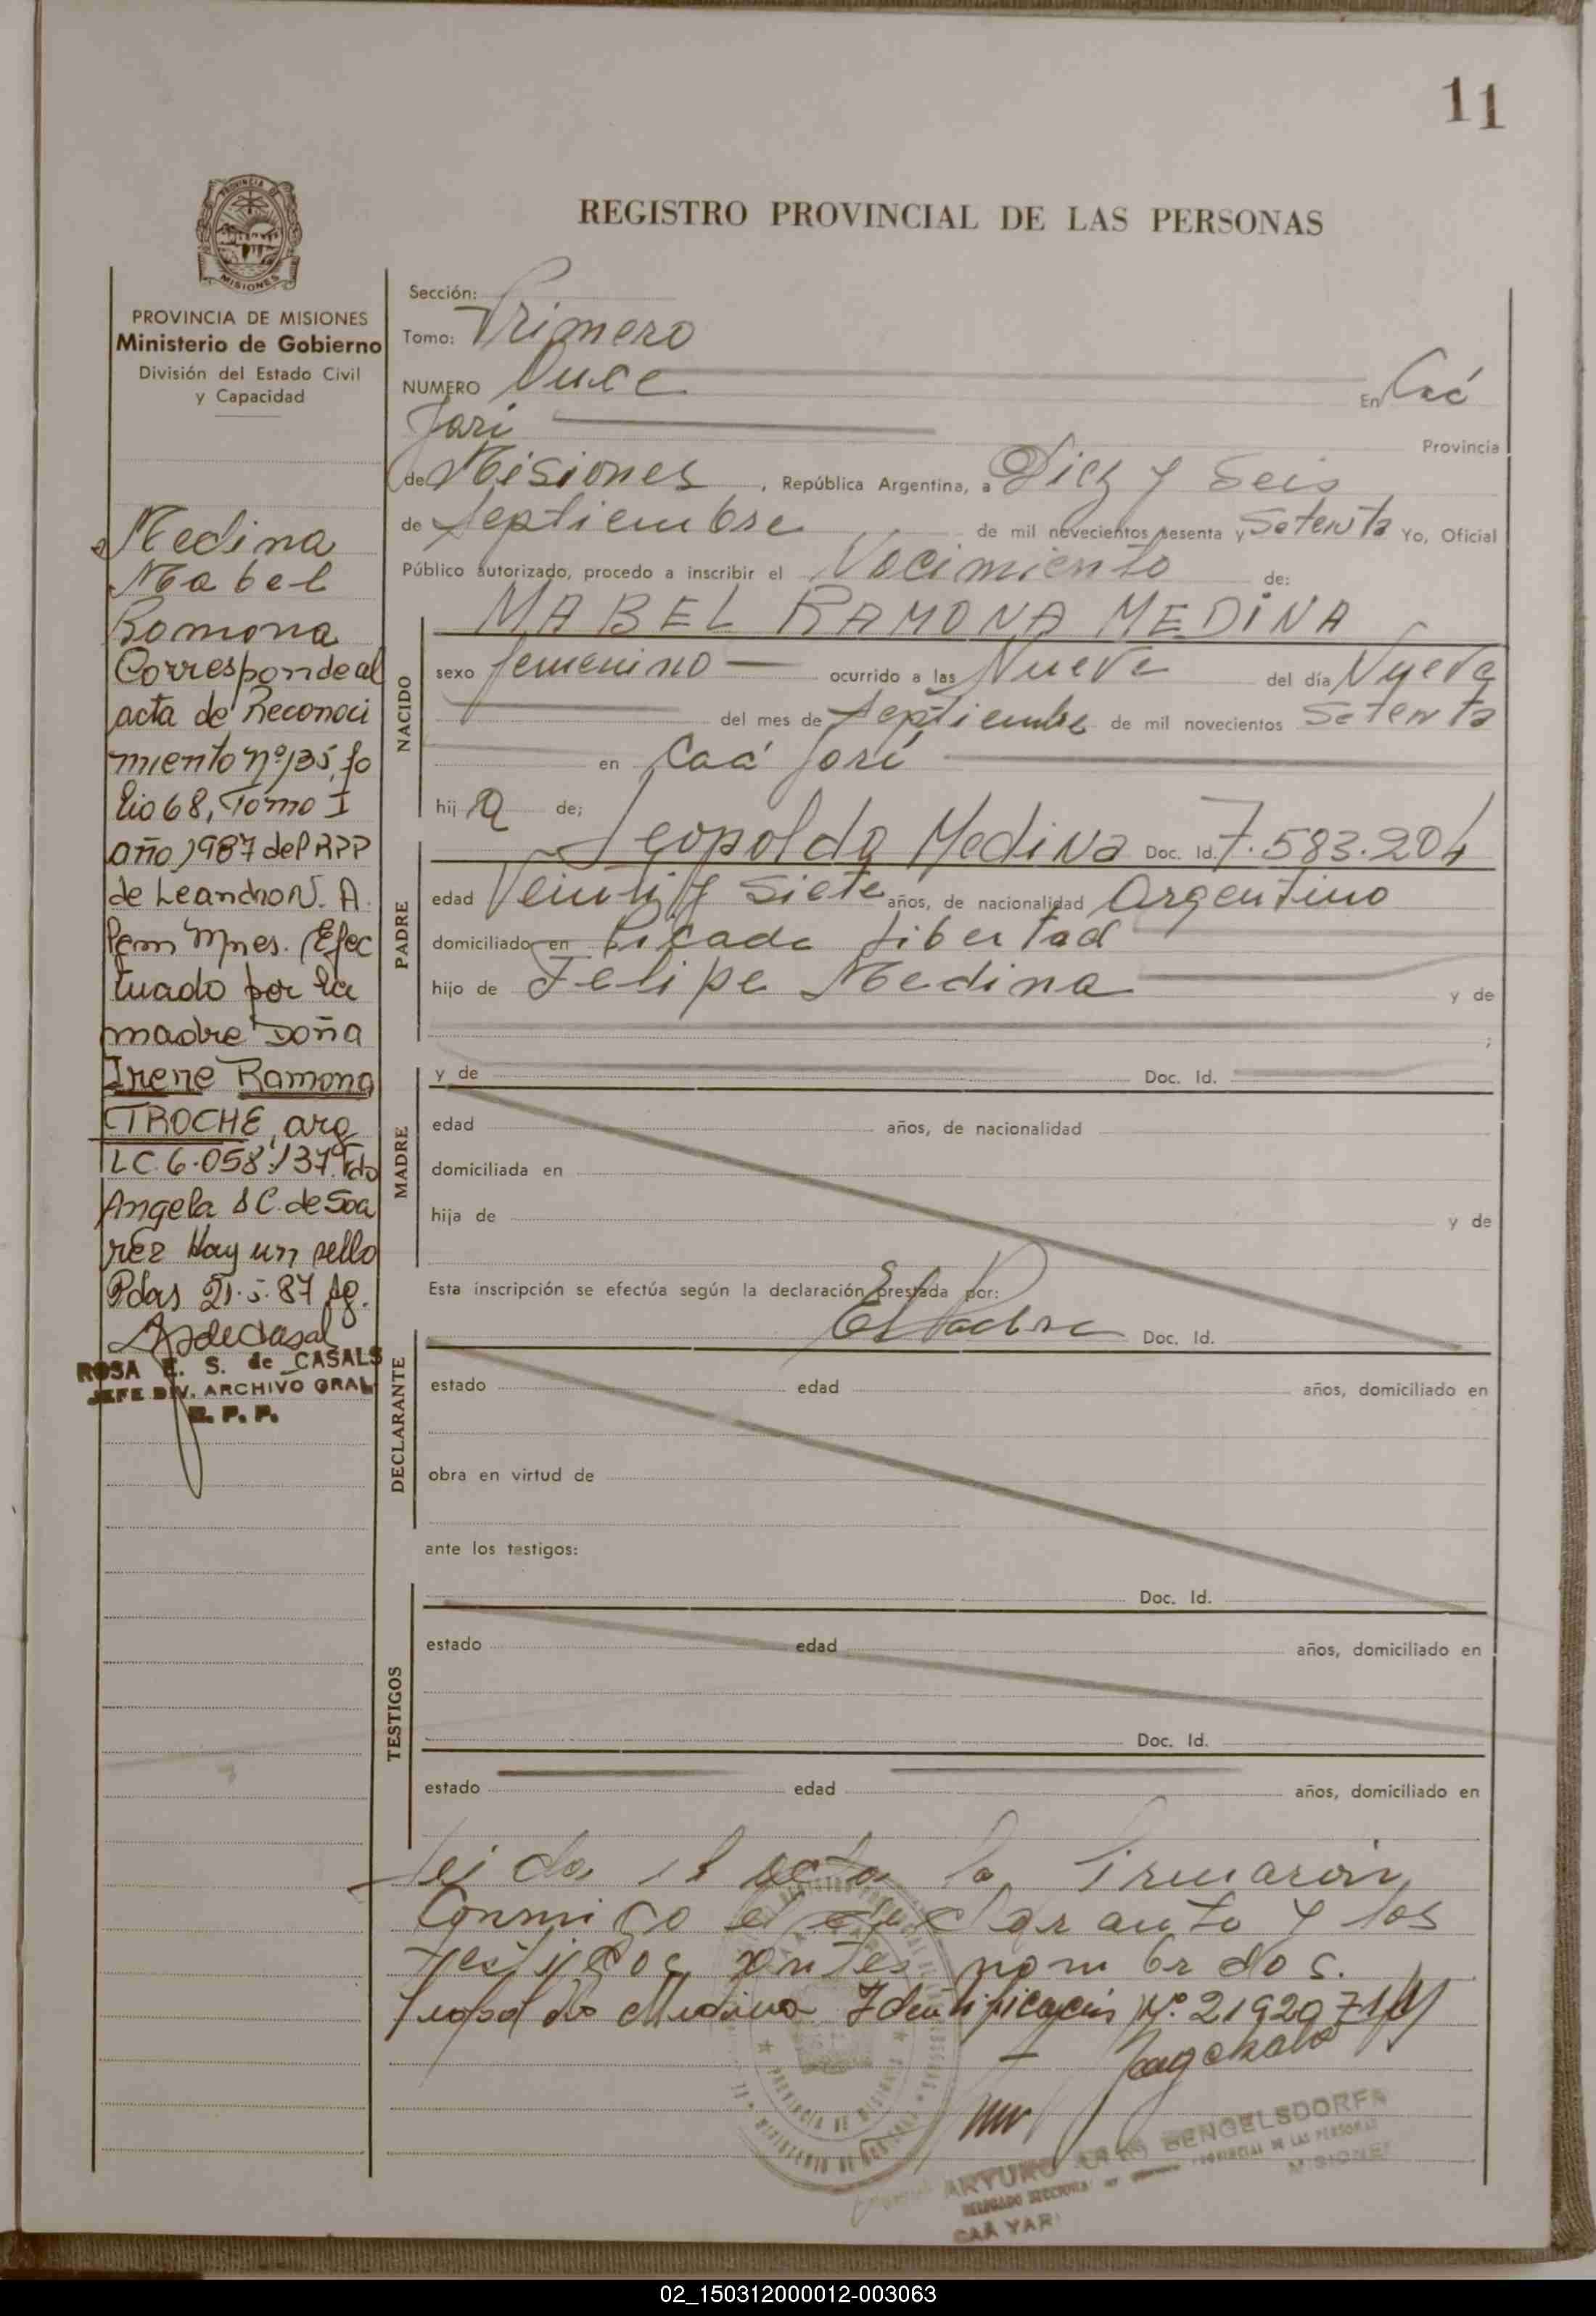 11
REGISTRO PROVINCIAL DE LAS PERSONAS
PROVINCIA DE
MISIONES
PROVINCIA DE MISIONES
Ministerio de Gobierno
División del Estado Civil
y Capacidad
Medina
Mabel
Ramona
Corresponde al
acta de Reconoci
miento nº 135, fo
lio 68, Tomo I
año 1987 del RPP
de Leandro N. A.
Pem Mnes. (Efec
tuado por la
madre Doña
Irene Ramona
TROCHE, arg
LC. 6.058.137. Fdo
Angela S C. de Soa
rez Hay un sello
Pdas 21.5.87
ROSA E. S. de CASALS
JEFE DIV. ARCHIVO GRAL
R. P. P.
Sección:
Tomo: Primero
NUMERO Once En Caá
Jari Provincia
de Misiones, República Argentina, a Diez y Seis
de Septiembre de mil novecientos sesenta y Setenta Yo, Oficial
Público autorizado, procedo a inscribir el Nacimiento de:
MABEL RAMONA MEDINA
NACIDO
sexo femenino ocurrido a las Nueve del día Nueve
del mes de Septiembre de mil novecientos Setenta
en Caá Jari
hij a de;
Leopoldo Medina Doc. Id. 7.583.204
PADRE
edad Veinti y Siete años, de nacionalidad Argentino
domiciliado en Picada Libertad
hijo de Felipe Medina y de
;
y de Doc. Id.
MADRE
edad años, de nacionalidad
domiciliada en
hija de y de
Esta inscripción se efectúa según la declaración prestada por:
El Padre Doc. Id.
DECLARANTE
estado edad años, domiciliado en
obra en virtud de
ante los testigos:
Doc. Id.
TESTIGOS
estado edad años, domiciliado en
Doc. Id.
estado edad años, domiciliado en
Leida el acta la firmaron
Conmigo el declarante y los
testigos antes nombrados.
Leopoldo Medina Identificación Nº. 21920714
PROVINCIA DE MISIONES
ARTURO BENGELSDORFF
PROVINCIAL DE LAS PERSONAS
MISIONES
CAA YARI
02_150312000012-003063